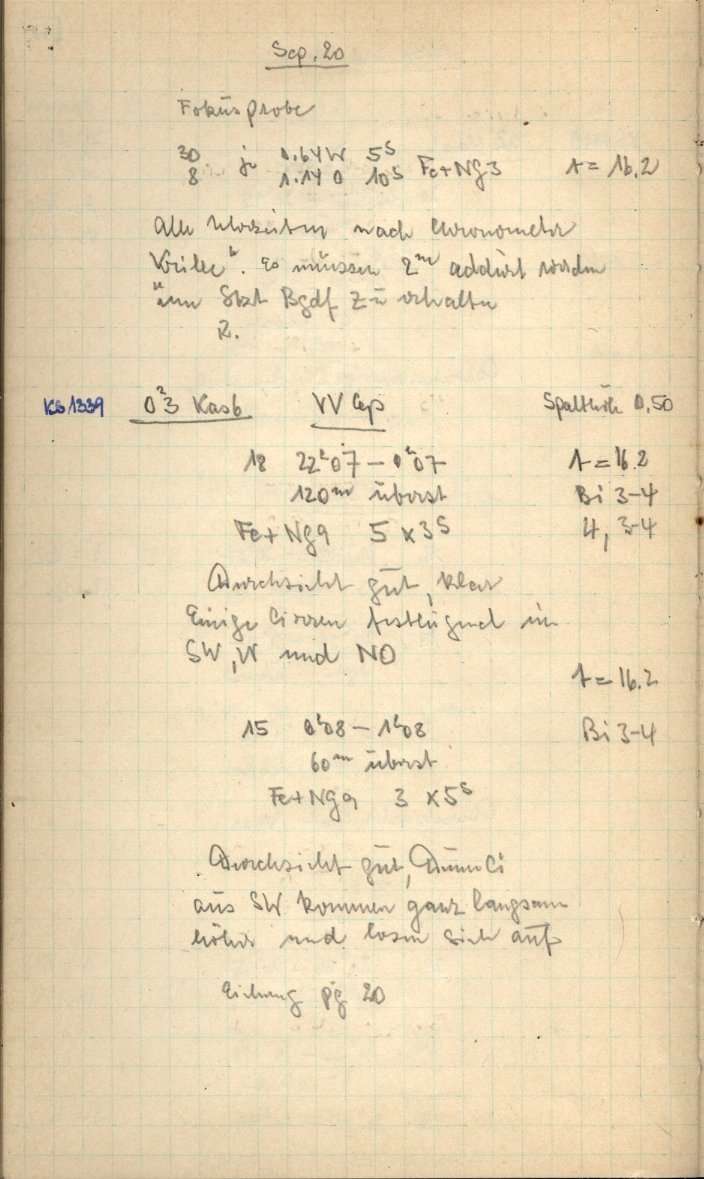 Sep. 20
Fokusprobe
30 je 1.64 W 5s
8 1.14 O 10s Fe+Ng3 t = 16.2
Alle Uhrzeiten nach Chronometer
". Es müssen 2m addiert werden
um Stzt Bgdf zu erhalten
R.
KB 1339 O²3 Kas6 VV Cep Spalthöhe 0,50
18 22h07 – 0h07 t = 16.2
120m überst Bi 3-4
Fe+Ng9 5 x 3s H, 3-4
Durchsicht gut, klar
Einige Cirren festliegend im
SW, W und NO
t = 16.2
15 0h08 – 1h08 Bi 3-4
60m überst
Fe+Ng9 3 x 5s
Durchsicht gut, Dünne Ci
aus SW kommen ganz langsam
höher und lösen sich auf
Eichung pg 20